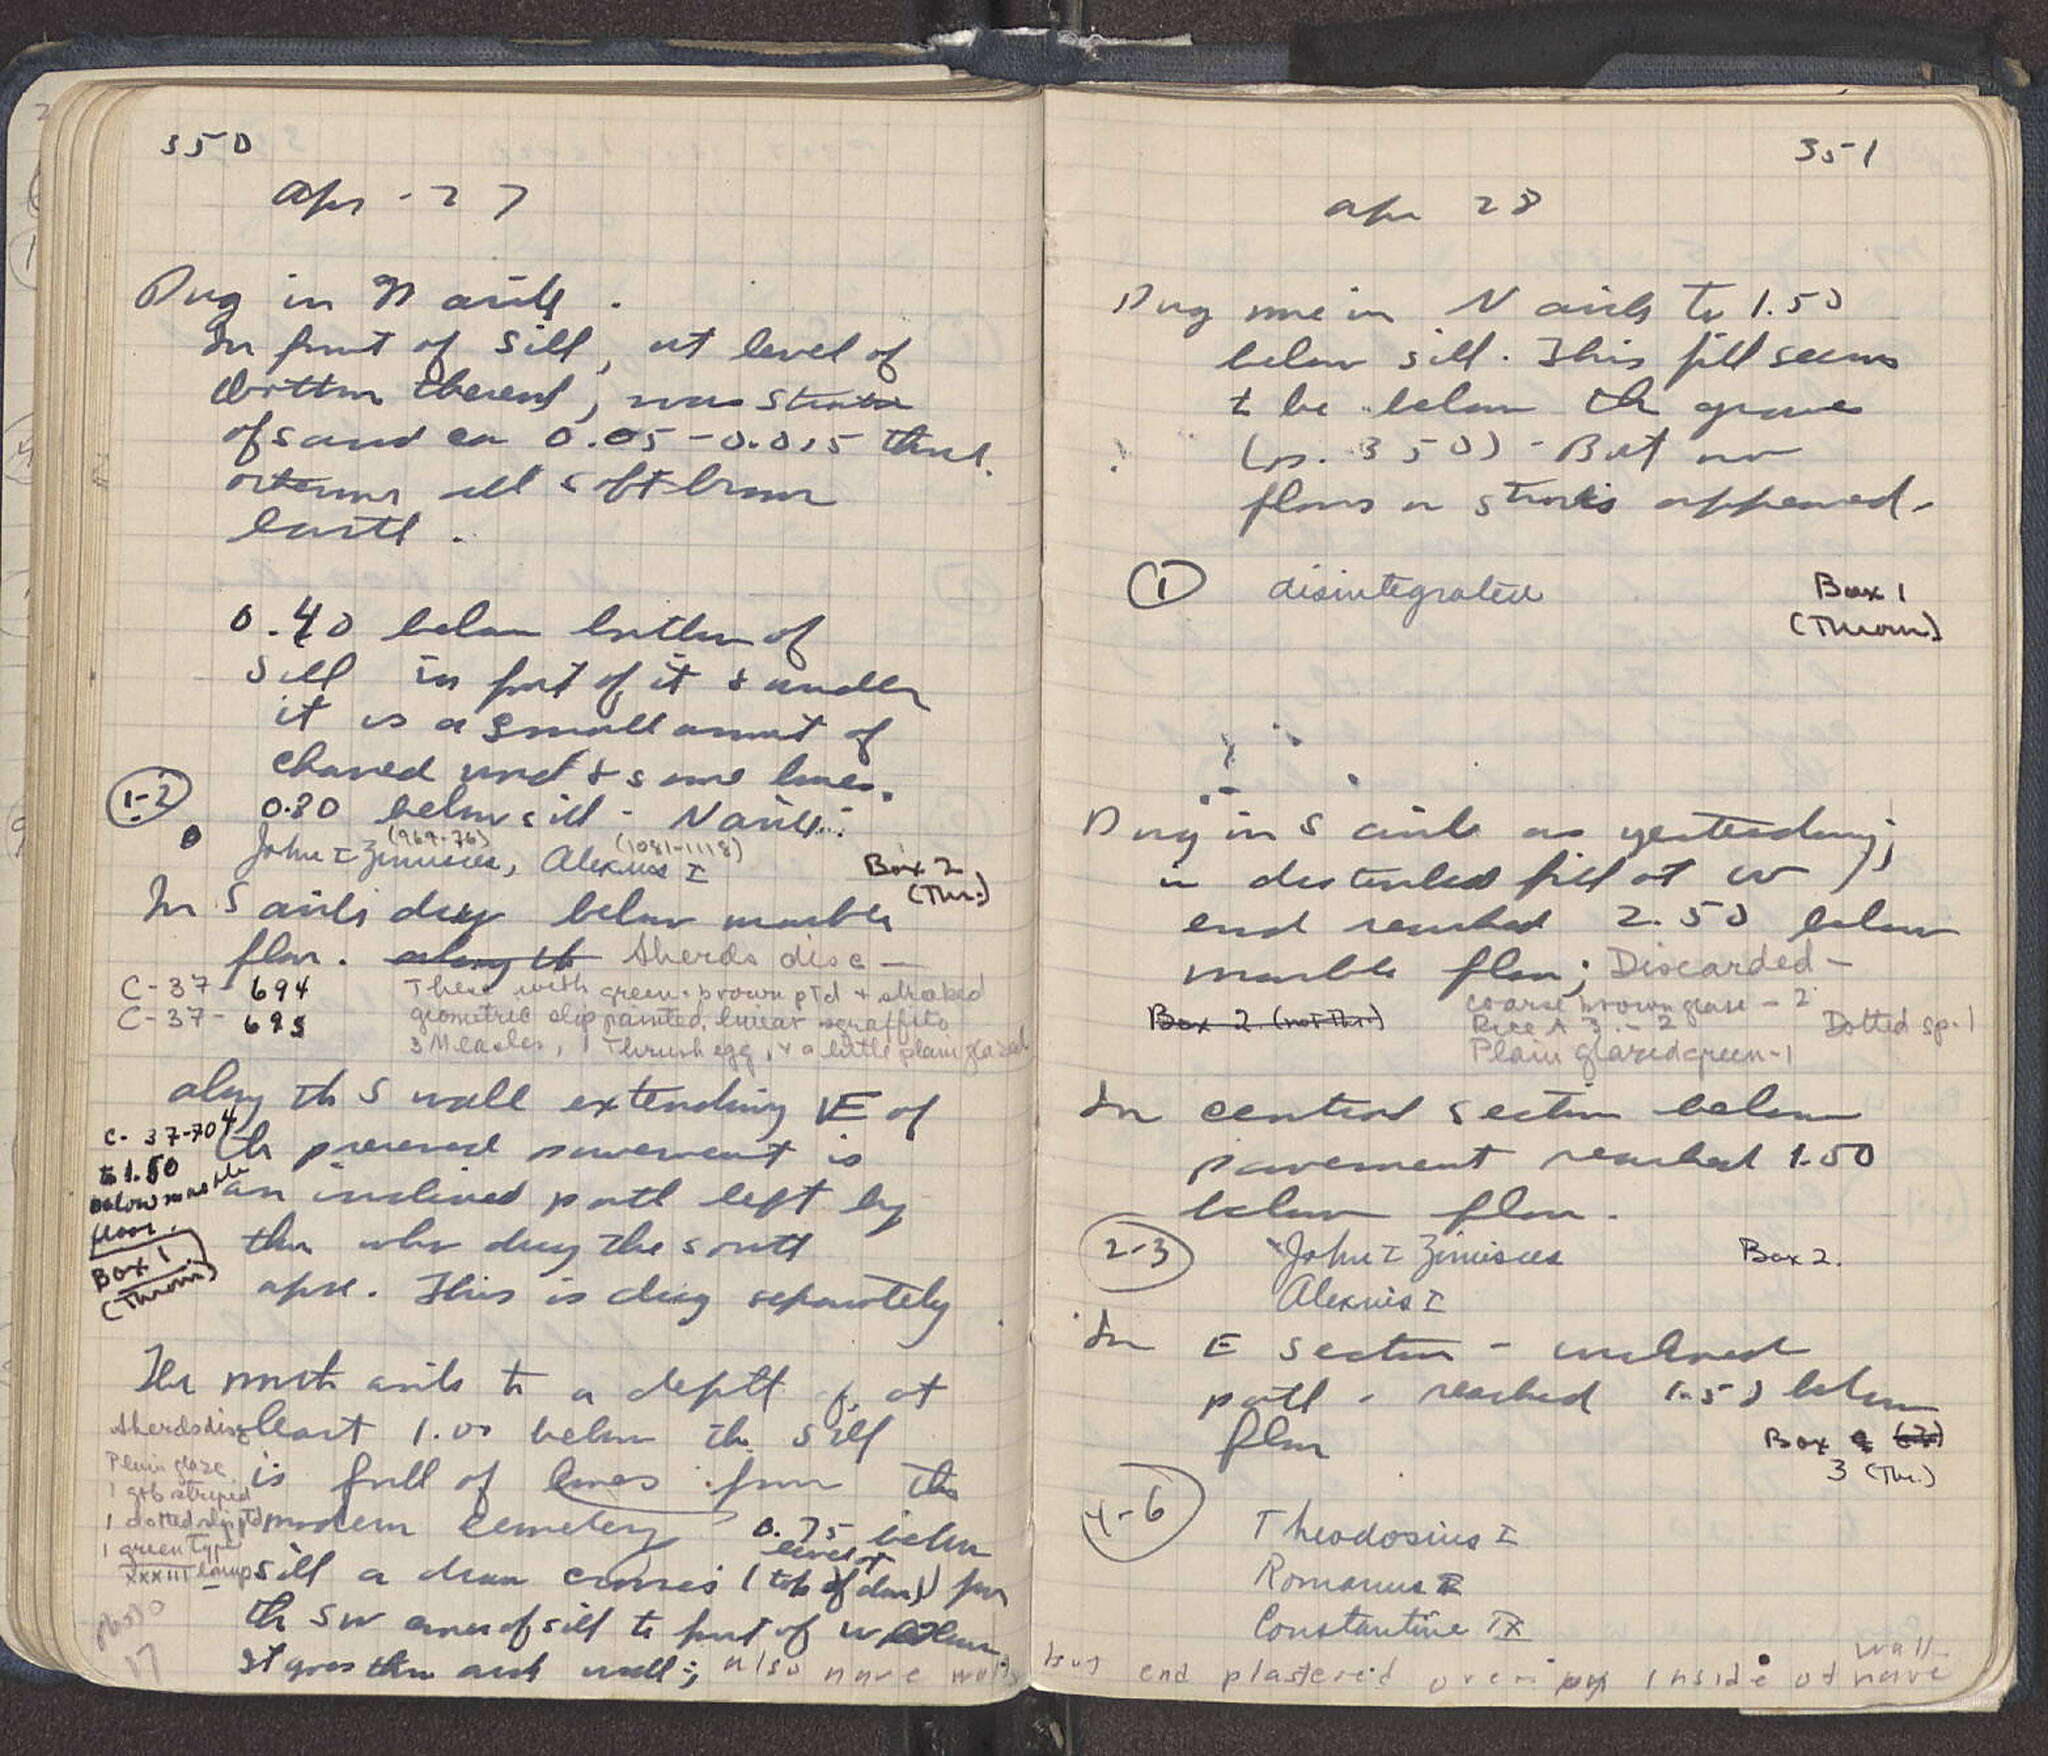 350
Apr - 27
Dug in N aisle.
In front of sill, at level of
bottom thereof, was strata
of sand ca 0.05-0.015 thick.
otherwise all soft brown
earth.
0.40 below bottom of
sill in front of it & under
it is a small amount of
charred wood & some bones.
1-2
0.80 below sill - N aisle:
(969-76) (1081-1118)
John I Zimisces, Alexius I
Box 2
(Thr.)
In S aisle dug below marble
floor. along th Sherds disc —
C-37- 694
C-37- 695
These with green-brown ptd + streaked
geometric slip painted, linear sgraffito
3 Measles, 1 Thrush egg, + a little plain glazed
along th S wall extending E of
th preserved pavement is
an inclined path left by
those who dug the south
apse. This is dug separately
C-37-704
to 1.50
below marble
floor.
Box 1
(Thrown)
The north aisle to a depth of at
least 1.00 below the sill
is full of bones from the
modern cemetery 0.75 below
sill a drain crosses (level of top of drain) from
th SW corner of sill to front of W
It goes thru aisle wall; also nave wall
Sherds disc
Plain glaze
1 g+b striped
1 dotted slip ptd
1 green type
XXXIII lamps
17
351
Apr 28
Dug more in N aisle to 1.50
below sill. This fill seems
to be below the graves
(p. 350) - But no
floors or strosis appeared.
1 disintegrated
Box 1
(Thrown)
Dug in S aisle as yesterday;
in disturbed fill at W
end reached 2.50 below
marble floor; Discarded -
Box 2 (not thr.)
coarse brown glaze - 2
Rice A 3. - 2
Dotted sp. 1
Plain glazed green-1
In central section below
pavement reached 1.50
below floor.
2-3
John I Zimisces
Box 2.
Alexius I
In E section - inclined
path - reached 1.50 below
floor
Box
3 (Thr.)
4-6
Theodosius I
Romanus
Constantine IX
but end plastered over on inside of nave wall